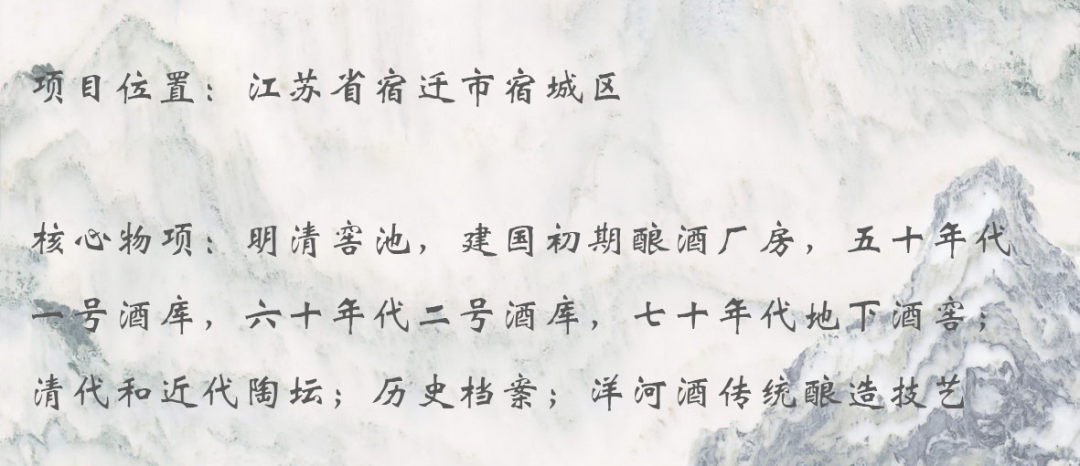 项目位置：江苏省宿迁市宿城区
核心物项：明清窖池，建国初期酿酒厂房，五十年代
一号酒库，六十年代二号酒库，七十年代地下酒窖；
清代和近代陶坛；历史档案；洋河酒传统酿造技艺